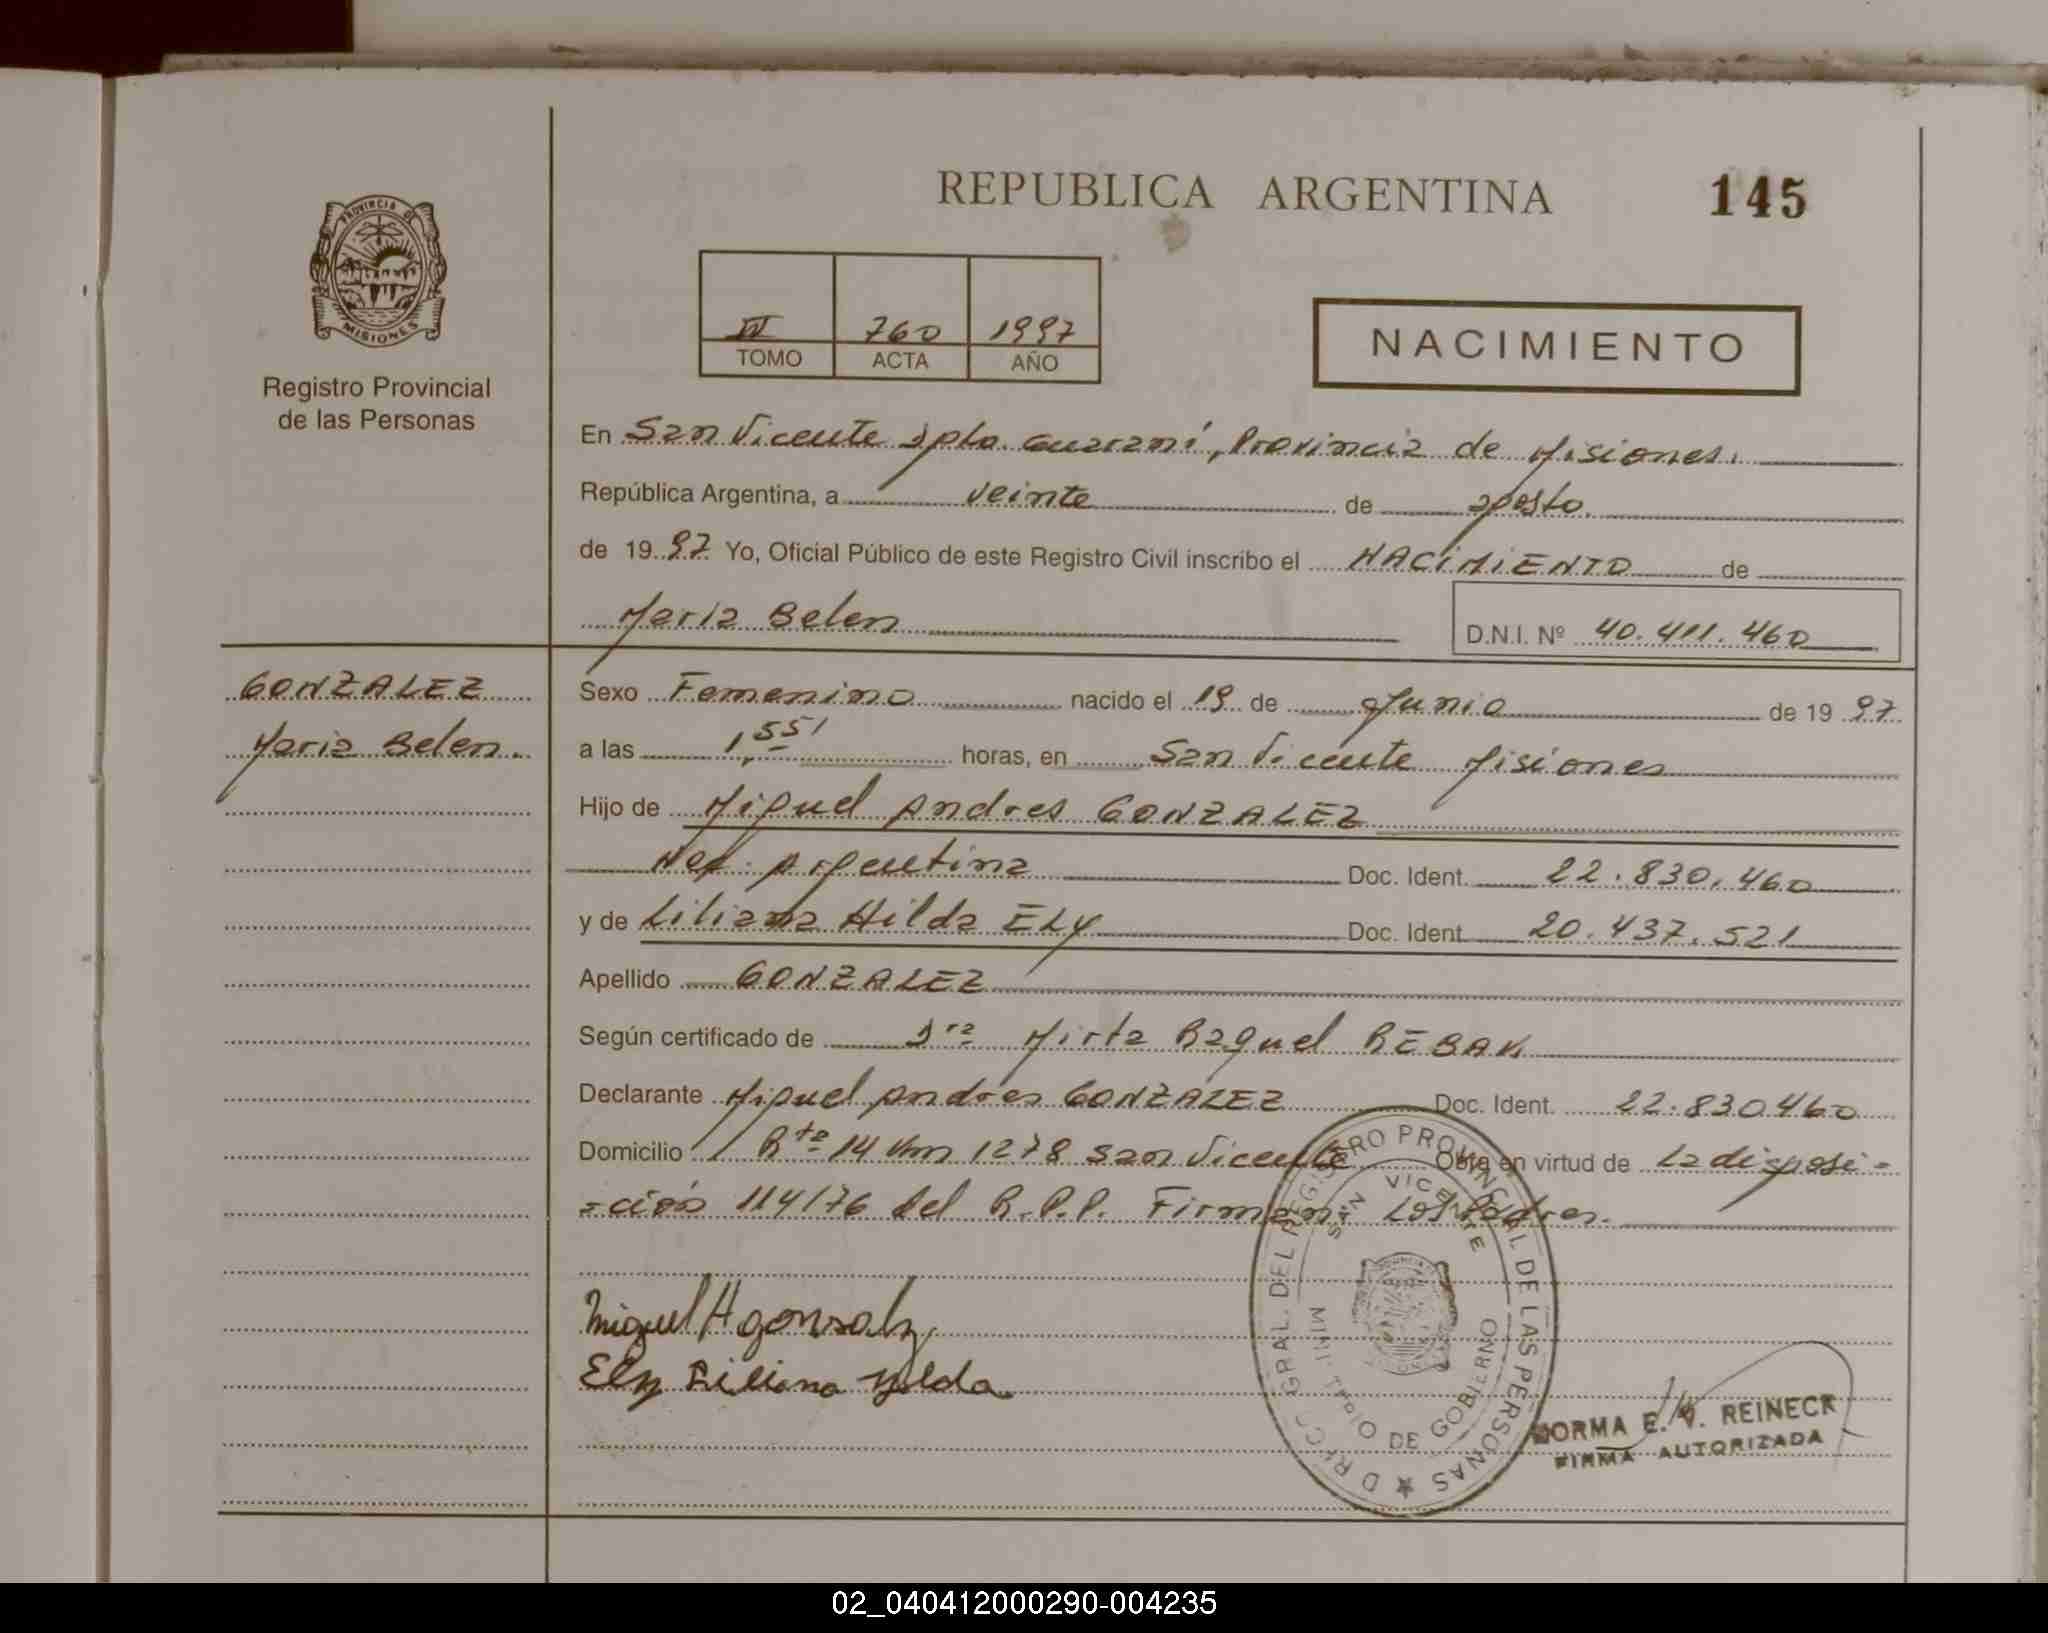 REPUBLICA ARGENTINA
145
PROVINCIA DE
MISIONES
Registro Provincial
de las Personas
IV 760 1997
TOMO ACTA AÑO
NACIMIENTO
En San Vicente dpto. Guaraní, Provincia de Misiones.
República Argentina, a veinte de agosto.
de 1997 Yo, Oficial Público de este Registro Civil inscribo el NACIMIENTO de
Maria Belen
D.N.I. Nº 40.411.460
GONZALEZ
Maria Belen.
Sexo Femenino nacido el 19 de Junio de 1997
a las 1,55' horas, en San Vicente Misiones
Hijo de Miguel Andres GONZALEZ
Nac. Argentina Doc. Ident. 22.830.460
y de Liliana Hilda ELY Doc. Ident. 20.437.521
Apellido GONZALEZ
Según certificado de Dra Mirta Raquel REBAK
Declarante Miguel Andres GONZALEZ Doc. Ident. 22.830460
Domicilio Rta 14 Km 1278 San Vicente Obra en virtud de La disposi=
=ción 114/76 del R.P.P. Firman: Los Padres.
Miguel A gonzalez
Ely Liliana Ylda
GRAL. DEL REGISTRO PROVINCIAL DE LAS PERSONAS
SAN VICENTE
DE GOBIERNO
NORMA E. V. REINECK
FIRMA AUTORIZADA
02_040412000290-004235